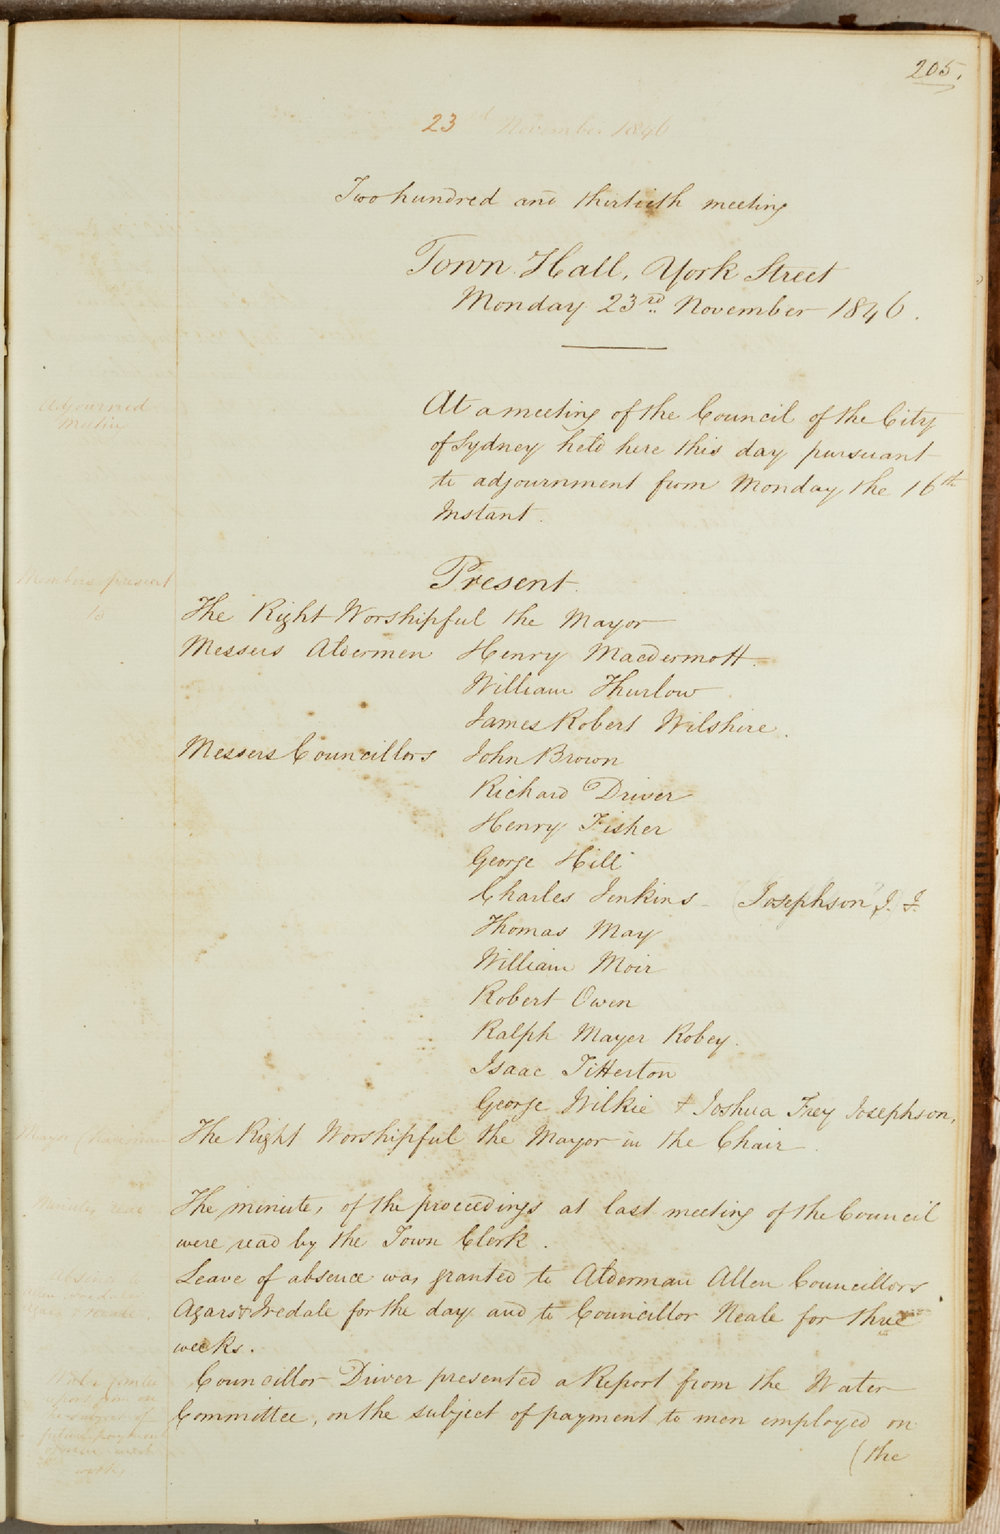 205.
23rd November 1846
Two hundred and thirtieth meeting
Town Hall, York Street
Monday 23rd November 1846.
Adjourned
At a meeting of the Council of the City
of Sydney held here this day pursuant
to adjournment from Monday the 16th
Instant.
Members present
15
Present.
The Right Worshipful the Mayor
Messers Aldermen Henry Macdermott.
William Thurlow.
James Robert Wilshire.
Messers Councillors John Brown
Richard Driver
Henry Fisher
George Hill
Charles Jenkins - (Josephson J. F.
Thomas May
William Moir
Robert Owen
Ralph Mayer Robey.
Isaac Titterton
George Wilkie & Joshua Frey Josephson,
Mayor Chairman
The Right Worshipful the Mayor in the Chair.
Minutes read
The minutes of the proceedings at last meeting of the Council
were read by the Town Clerk.
Leave of absence was granted to Alderman Allen Councillors
Agars & Iredale for the day and to Councillor Neale for three
weeks.
Councillor Driver presented a Report from the Water
Committee, on the subject of payment to men employed on
(the